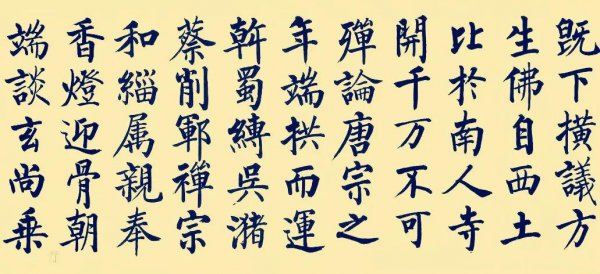 旣下橫議方
生佛自西土
比於南人寺
開千万不可
殫論唐宗之
年端拱而運
斡蜀縛吳潴
蔡削鄆禪宗
和緇属親奉
香燈迎骨朝
端談玄尚乗